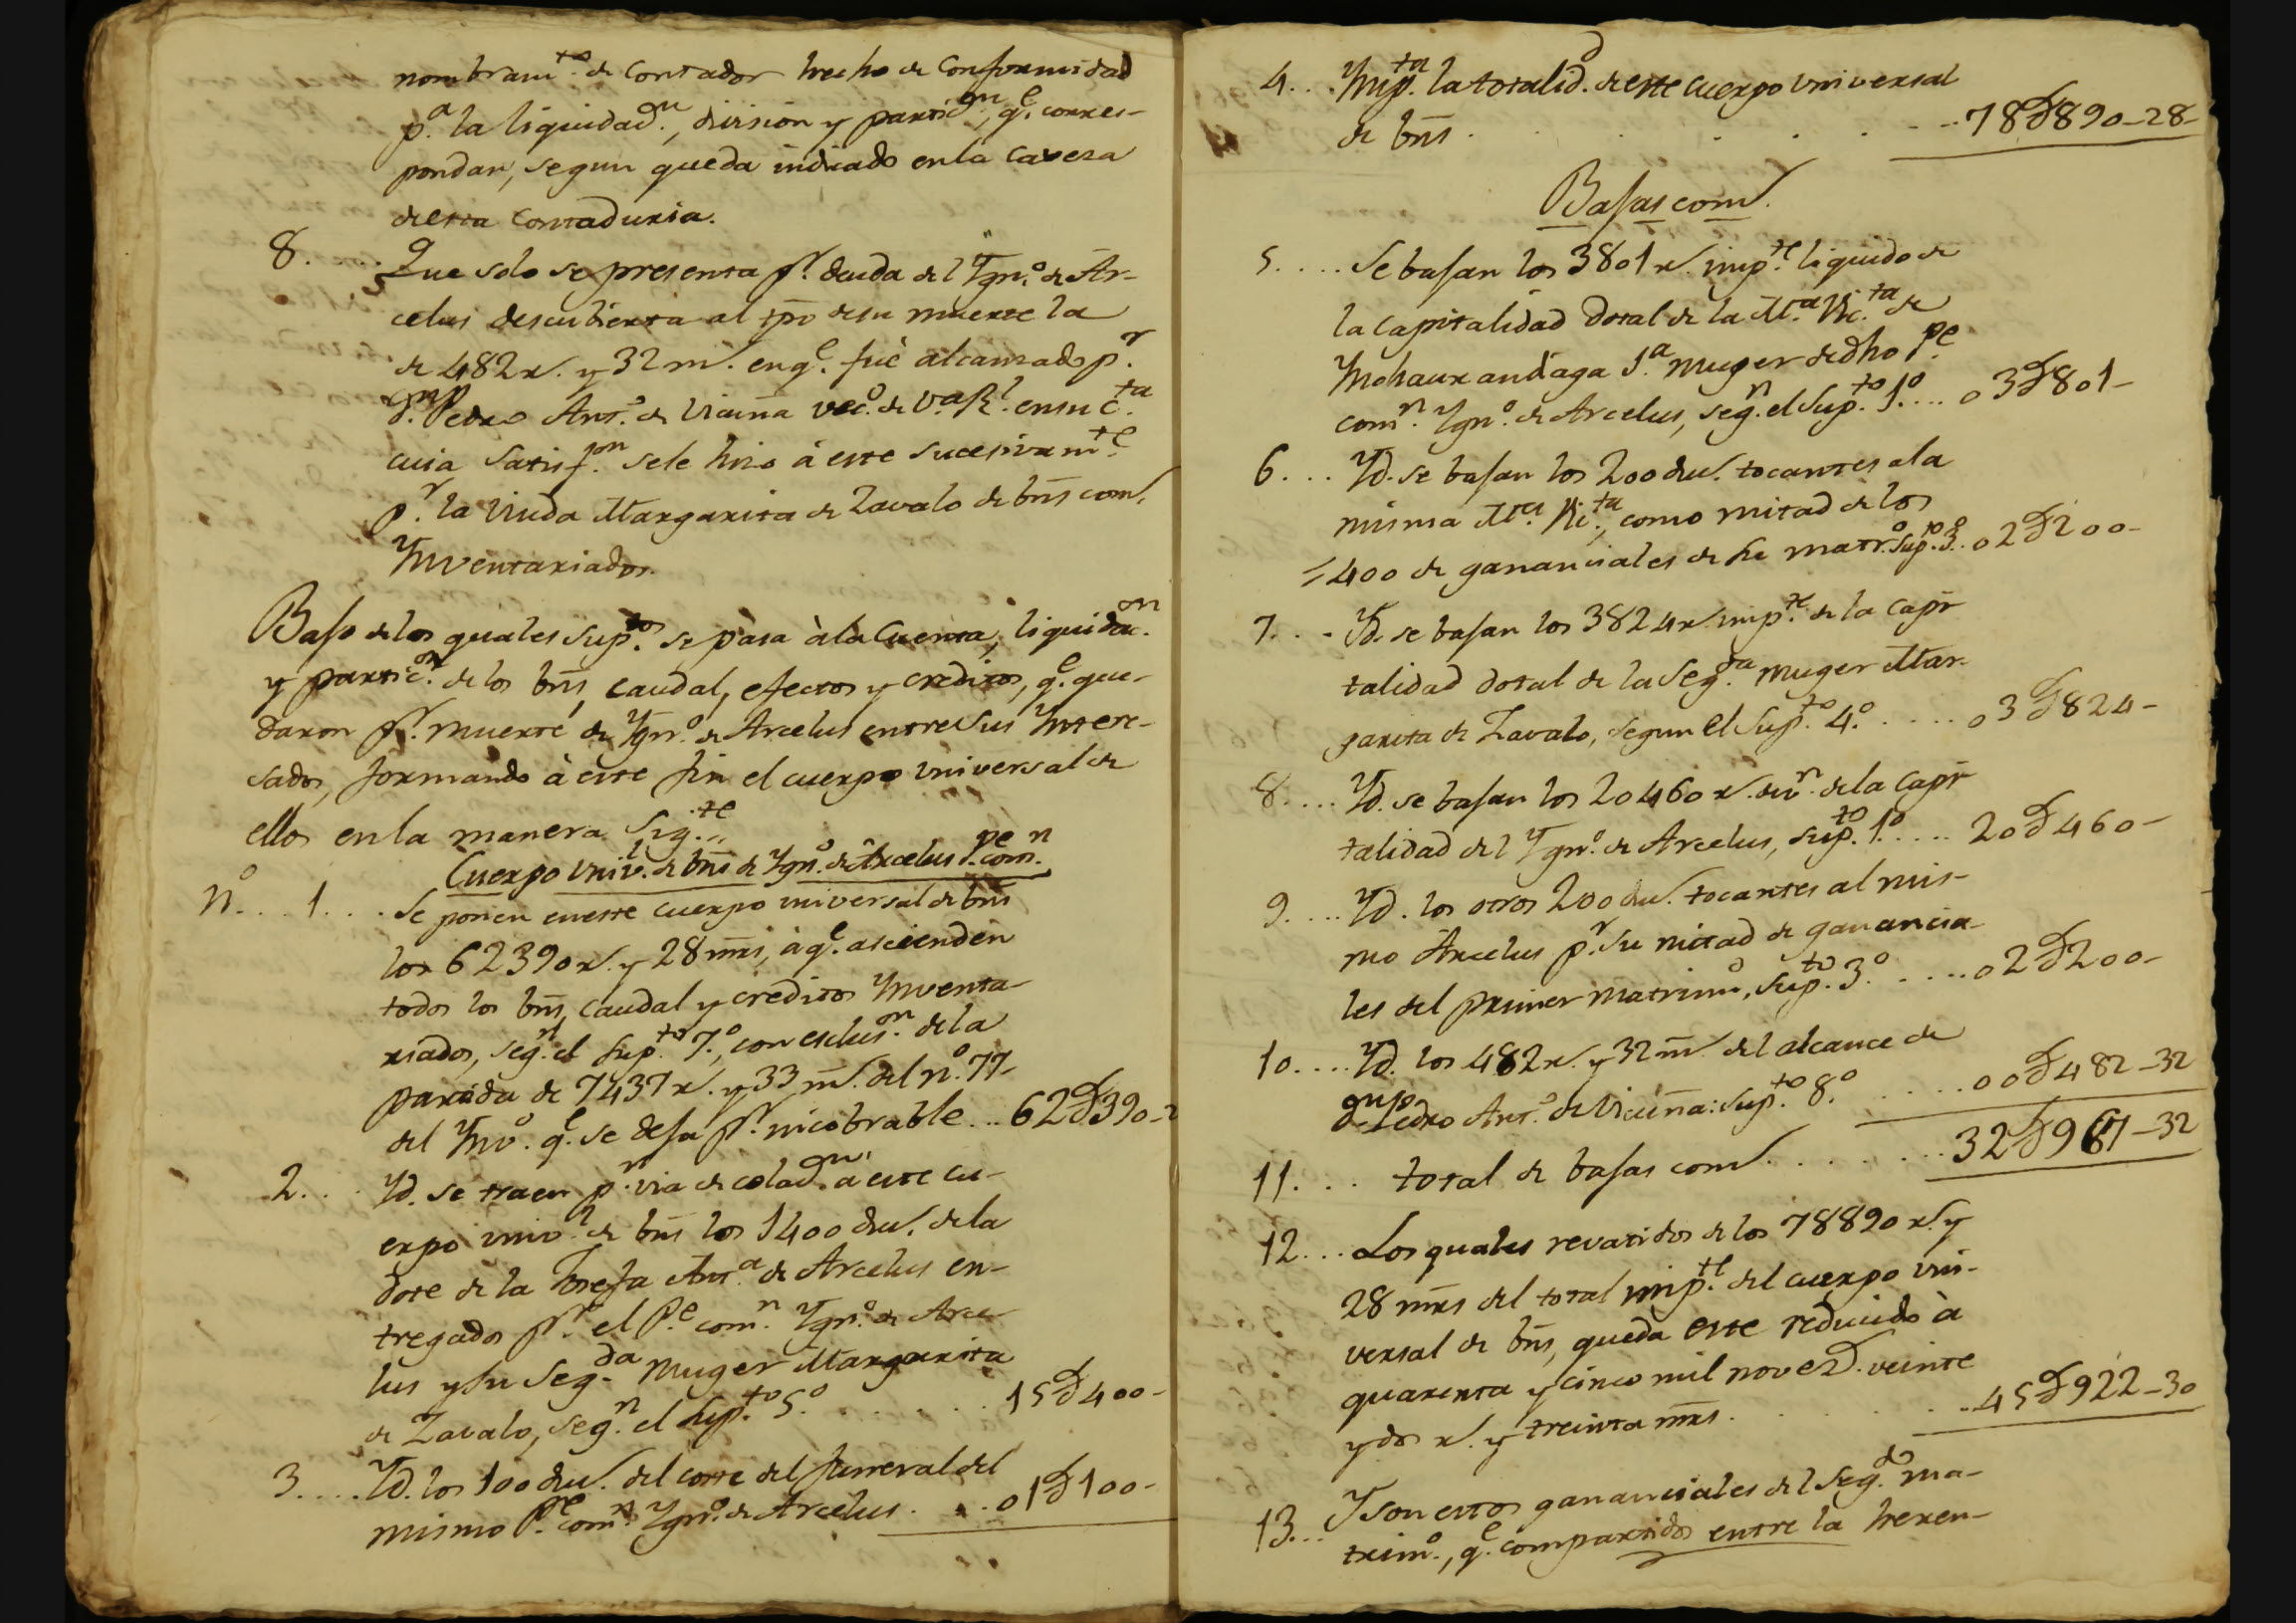 nombram.to de Contador hecho de Conformidad
p.a la liquidad.n, division y partic.on, q.e corres-
pondan, segun queda indicado en la Caveza
de esta Contaduria.
8. .... Que solo se presenta p.r deuda del Ygn.o de Ar-
celus descubierta al tpo de su muerte la
de 482 r.s y 32 m.s en q.e fuè alcanzado p.r
D.n Pedro Ant.o de Vicuña vec.o de V.a R.l en su C.ta
cuia Satisf.on se le hizo à este sucesivam.te
p.r la Viuda Margarita de Zavalo de bns com.s
Ynventariados.
Baso de los quales Sup.tos se pasa à la Cuenta, liquidac.on
y partic.on de los bns, caudal, efectos y creditos, q.e que-
daron p.r muerte de Ygn.o de Arcelus entre sus Yntere-
sados, formando à este fin el cuerpo universal de
ellos en la manera Sig.te
Cuerpo Univ.l de bns de Ygn.o de Arcelus P.e com.n
N.o .. 1 ... Se ponen en este cuerpo universal de bns
los 62390 r.s y 28 mrs, à q.e ascienden
todos los bns, caudal y creditos Ynventa-
riados, seg.n el Sup.to 7.o, con esclus.on de la
partida de 7437 r.s y 33 m.s del n.o 77
del Ynv.o q.e se desa p.r incobrable ... 62D390-2
2. . . Yd. se traen p.r via de colad.n à este cu-
erpo univ.l de bns los 1400 du.s de la
dote de la Josefa Ant.a de Arcelus en-
tregados p.r el P.e com.n Ygn.o de Arce-
lus y su Seg.da Muger Margarita
de Zavalo, seg.n el Sup.to 5.o . . . . . . 15D400-
3. .... Yd. los 100 du.s del coste del funeral del
mismo P.e com.n Ygn.o de Arcelus . . . 01D100-
4. . . Ymp.ta la totalid.d de este cuerpo universal
de bns . . . . . . 78D890-28-
Basas com.s
5. .... Se basan los 3801 r.s imp.te liquido de
la Capitalidad Dotal de la M.a Vic.ta de
Ynchaurandiaga 1.a Muger de dho P.e
com.n Ygn.o de Arcelus, seg.n el Sup.to 1.o ... 03D801-
6. . . . Yd. se basan los 200 du.s tocantes a la
misma M.a Vic.ta, como mitad de los
400 de gananciales de su matr.o Sup.to 3.o . 02D200-
7. . . Yd. se basan los 3824 r.s imp.te de la capi-
talidad dotal de la Seg.da muger Mar-
garita de Zavalo, segun el Sup.to 4.o . . . . . 03D824-
8. ... Yd. se basan los 20460 r.s de v.n de la Capi-
talidad del Ygn.o de Arcelus, Sup.to 1.o .... 20D460-
9. .... Yd. los otros 200 du.s tocantes al mis-
mo Arcelus p.r su mitad de ganancia-
les del primer Matrim.o, Sup.to 3.o . . . . . 02D200-
10. .... Yd. los 482 r.s y 32 m.s del alcance de
D.n Pedro Ant.o de Vicuña: Sup.to 8.o . . . . 00D482-32
11. . . . total de basas com.s . . . . . . 32D967-32
12. ... Los quales revatidos de los 78890 r.s y
28 mrs del total imp.te del cuerpo uni-
versal de bns, queda este reducido à
quarenta y cinco mil novec.s veinte
y dos r.s y treinta mrs . . . . . . 45D922-30
13. .. Y son estos gananciales del Seg.do ma-
trim.o, q.e compartidos entre la heren-